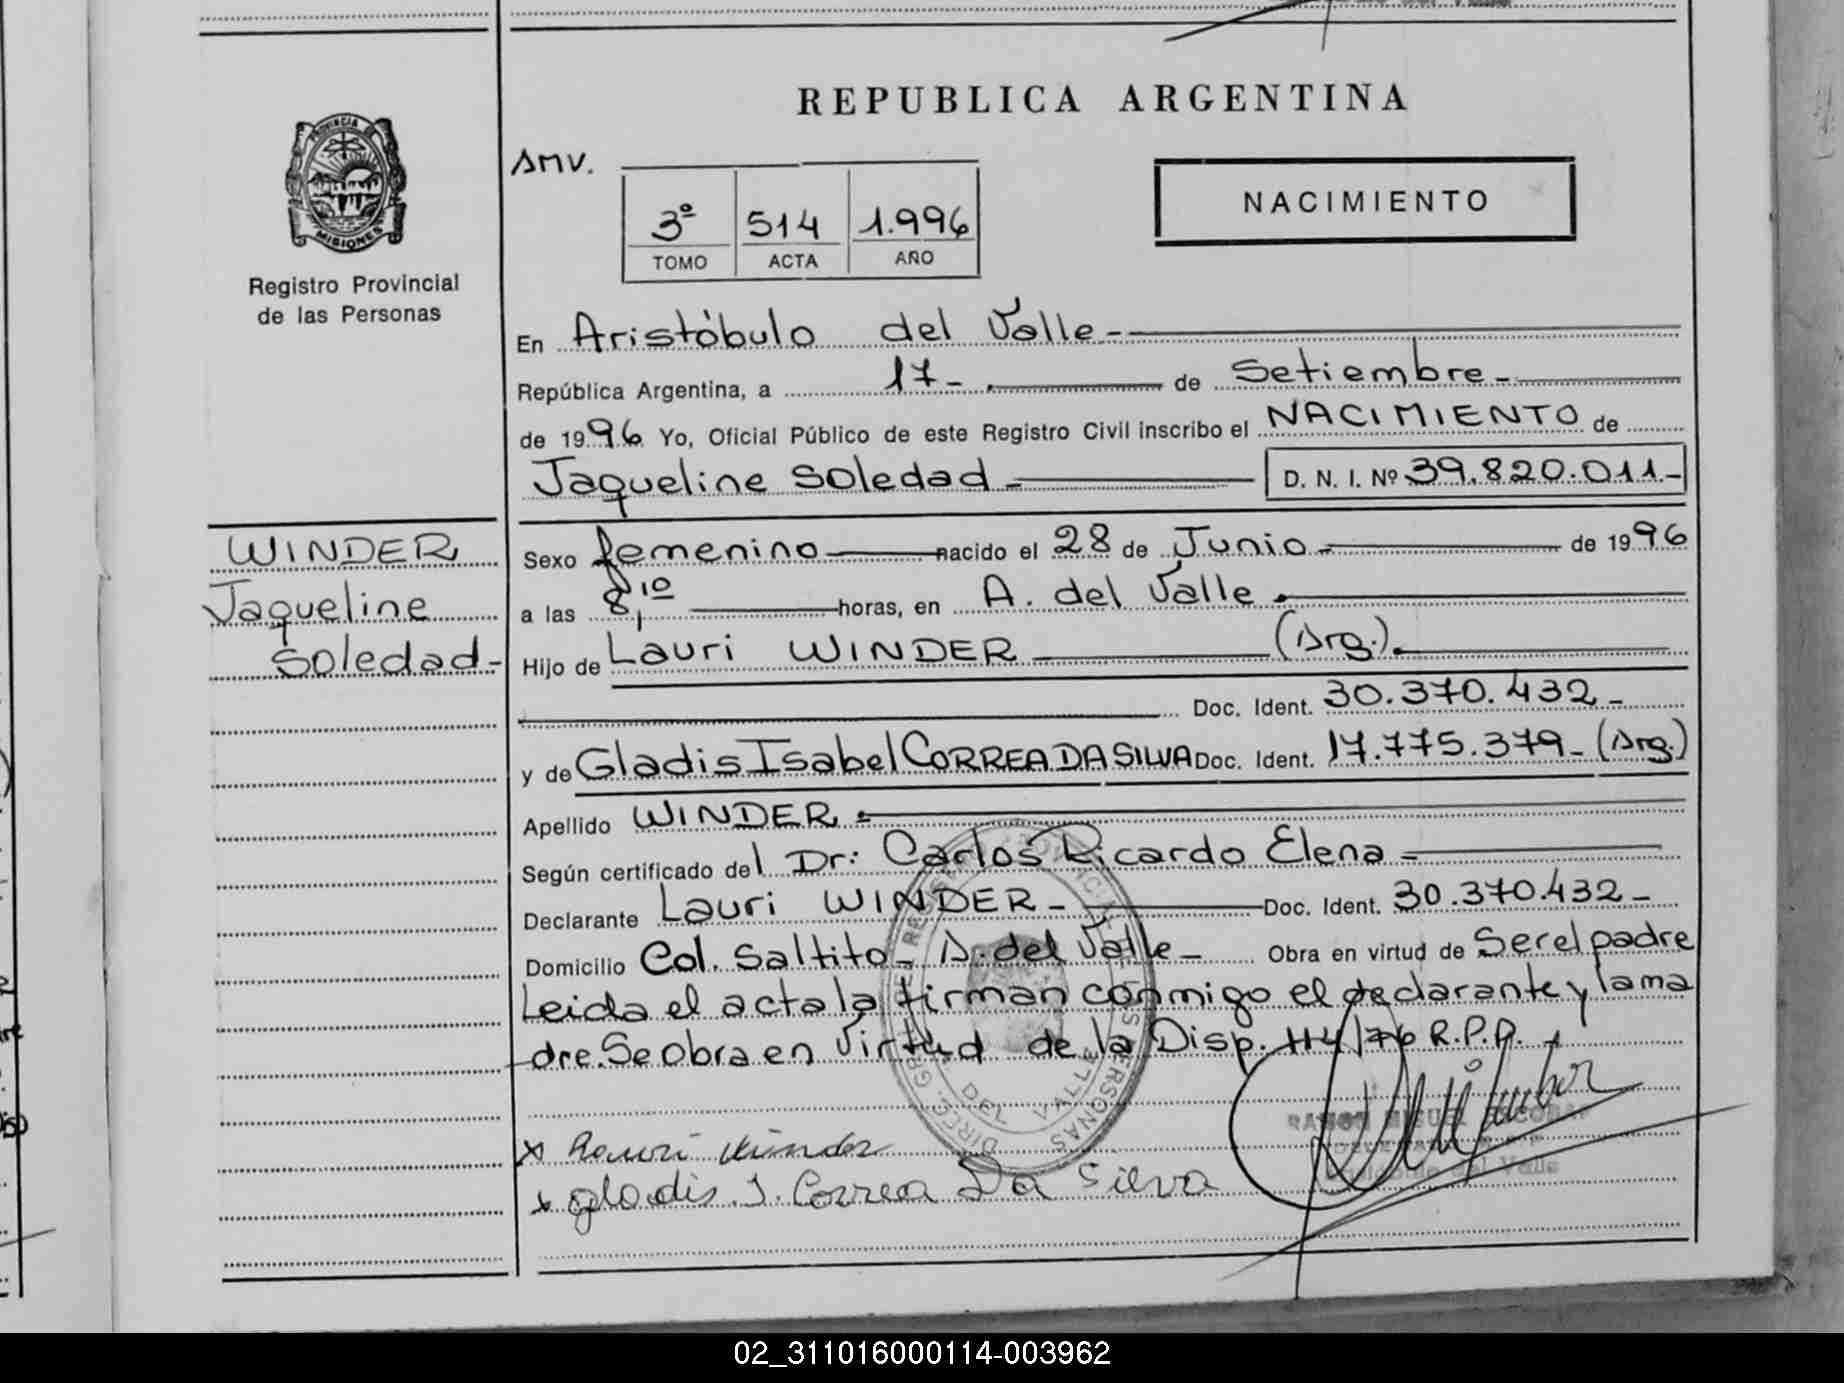 REPUBLICA ARGENTINA
PROVINCIA DE
MISIONES
Registro Provincial
de las Personas
AMV.
3º 514 1.996
TOMO ACTA AÑO
NACIMIENTO
En Aristóbulo del Valle-
República Argentina, a 17- de Setiembre-
de 1996 Yo, Oficial Público de este Registro Civil inscribo el NACIMIENTO de
Jaqueline Soledad - D. N. I. Nº 39.820.011-
WINDER
Jaqueline
Soledad-
Sexo femenino nacido el 28 de Junio - de 1996
a las 8,10 horas, en A. del Valle.
Hijo de Lauri WINDER (Arg.).
Doc. Ident. 30.370.432-
y de Gladis Isabel CORREA DA SILVA Doc. Ident. 17.775.379- (Arg.)
Apellido WINDER.
Según certificado del Dr: Carlos Ricardo Elena -
Declarante Lauri WINDER - Doc. Ident. 30.370.432-
Domicilio Col. Saltito- A. del Valle- Obra en virtud de Ser el padre
Leida el acta la firman conmigo el declarante y la ma
dre. Se obra en virtud de la Disp. 114/76 R.P.P.
x Lauri Winder
x gladis. I. Correa Da Silva
RAMON MIGUEL ESCOBAR
Aristóbulo del Valle
02_311016000114-003962